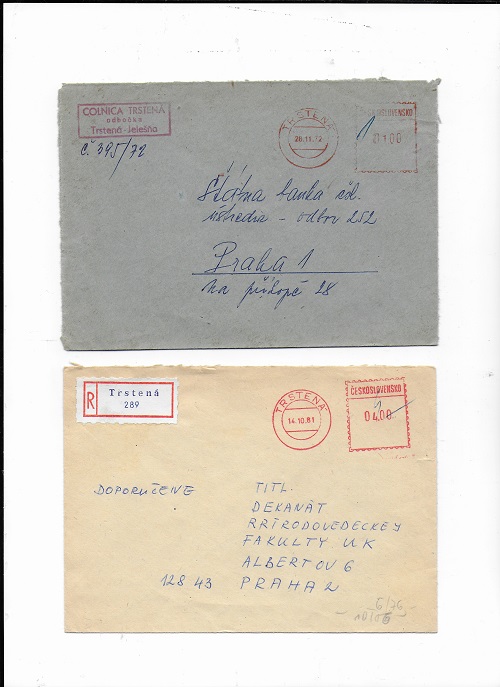 COLNICA TRSTENÁ
odbočka
Trstená-Jelešňa
č. 395/72
TRSTENÁ
28.11.72
ČESKOSLOVENSKO
0100
Štátna banka čsl.
ústredie - odbor 252
Praha 1
Na příkopě 28
R
Trstená
289
TRSTENÁ
14.10.81
ČESKOSLOVENSKO
0400
DOPORUČENE
TITL.
DEKANÁT
PRÍRODOVEDECKEJ
FAKULTY UK
ALBERTOV 6
128 43 PRAHA 2
6/76